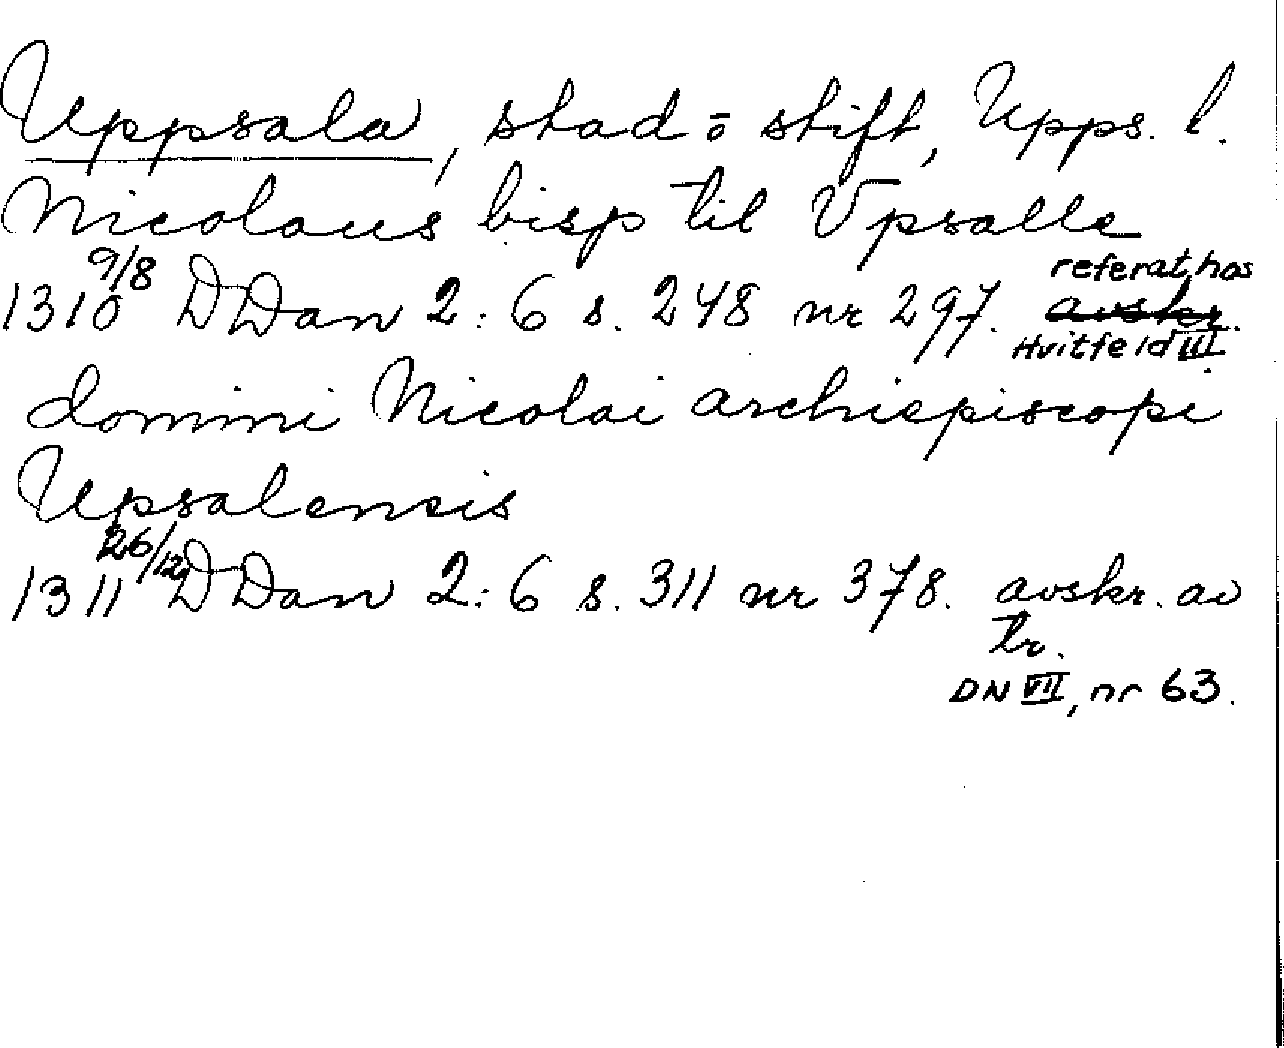 Uppsala, stad o stift, Upps. l.
Nicolaus bisp til Vpsalle
1310 9/8 DDan 2:6 s. 248 nr 297. referat hos
avskr.
Hvitfeld III
domini Nicolai archiepiscopi
Upsalensis
1311 26/12 DDan 2:6 s. 311 nr 378. avskr. av
tr.
DN VII, nr 63.